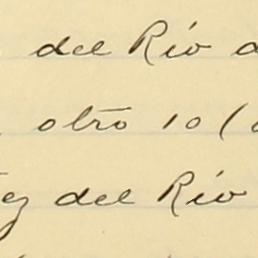 del Rio
otro 10 (
del Rio